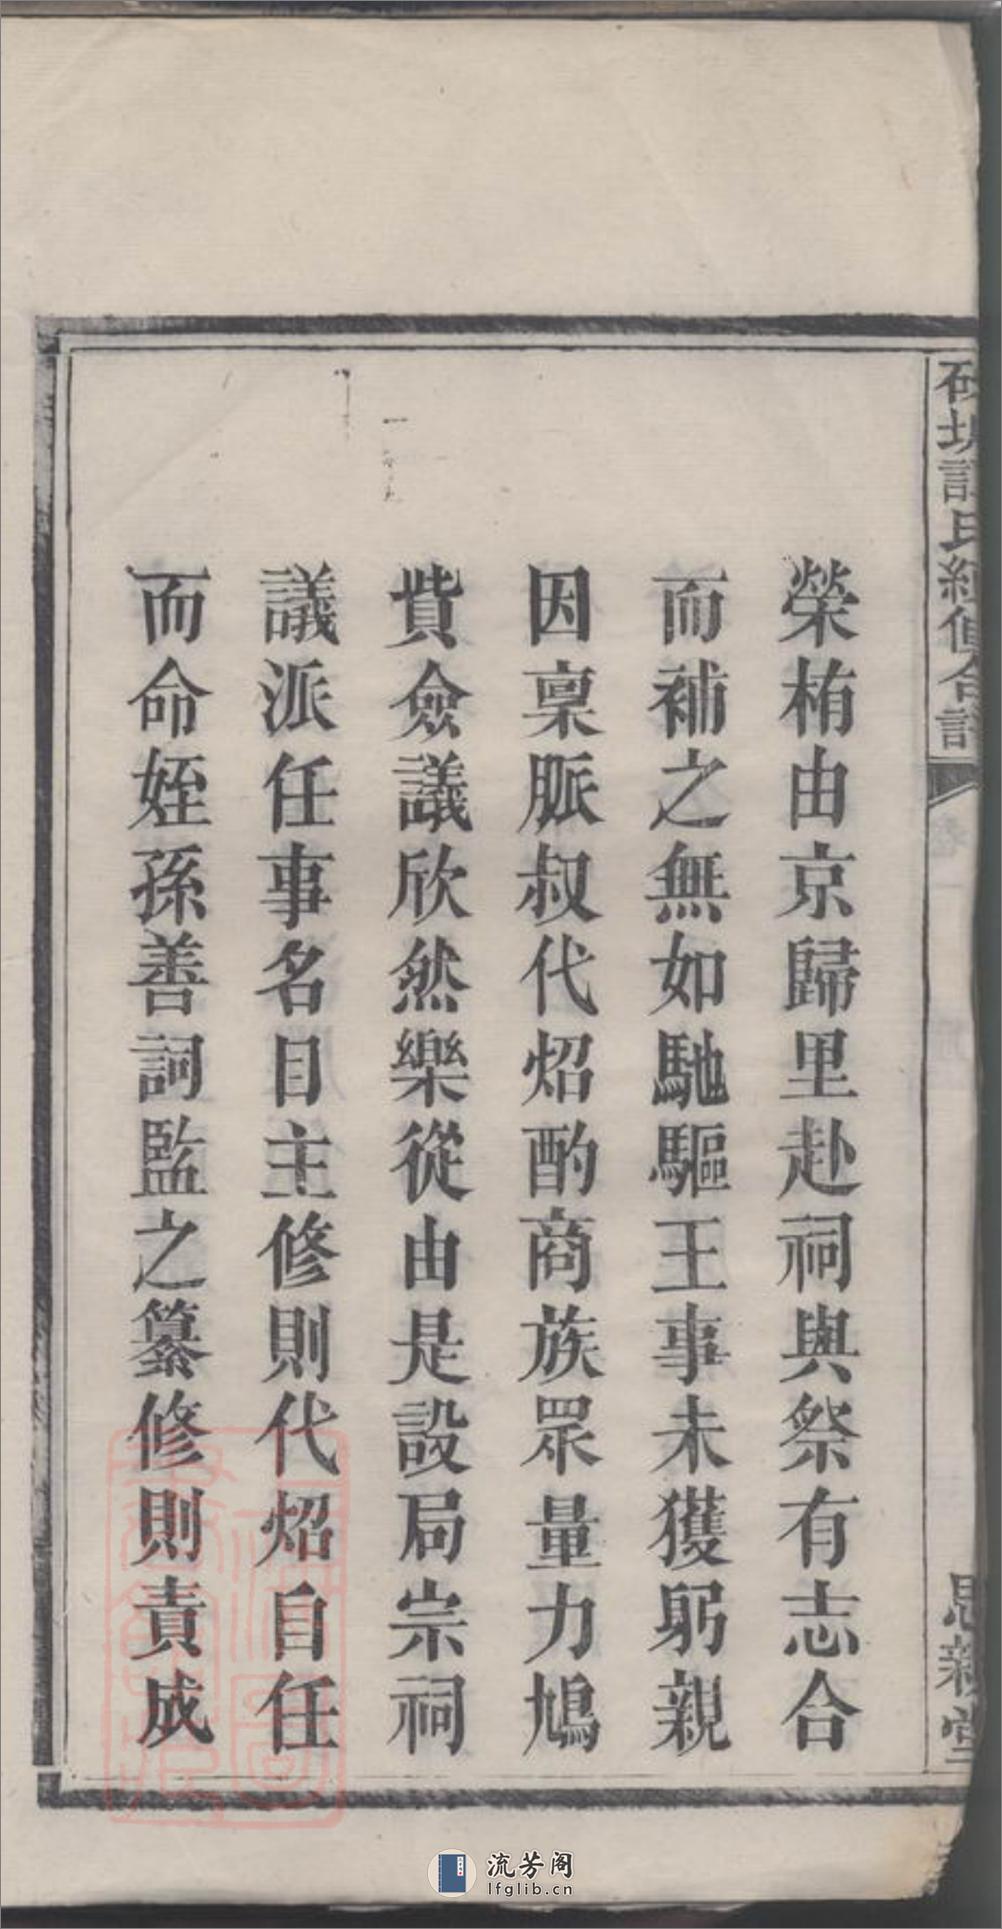 榮栯由京歸里赴祠與祭有志合
而補之無如馳驅王事未獲躬親
因稟脈叔代炤酌商族眾量力鳩
貲僉議欣然樂從由是設局宗祠
議派任事名目主修則代炤自任
而命姪孫善詞監之纂修則責成
氏
思親堂
流芳阁
lfglib.cn